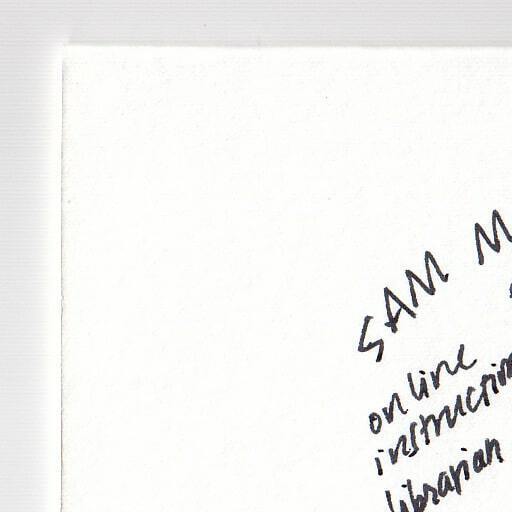 SAM M
online
instruction
librarian